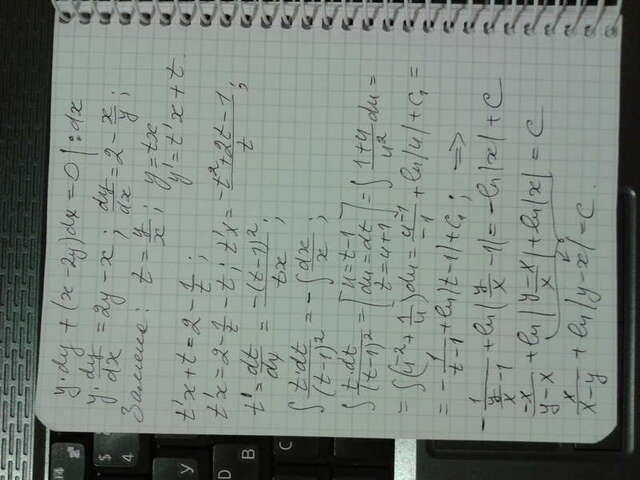 y·dy + (x-2y)dx = 0 | :dx
y·dy/dx = 2y - x ; dy/dx = 2 - x/y ;
Замена: t = y/x ; y = tx
y' = t'x + t
t'x + t = 2 - 1/t ;
t'x = 2 - 1/t - t ; t'x = -t²+2t-1/t ;
t' = dt/dy = -(t-1)²/tx ;
∫ t·dt/(t-1)² = -∫ dx/x ;
∫ t·dt/(t-1)² = [u=t-1 du=dt t=u+1] = ∫ 1+u/u² du =
= ∫(u⁻² + 1/u)du = u⁻¹/-1 + ln|u| + C₁ =
= -1/t-1 + ln|t-1| + C₁ ; =>
-1/(y/x - 1) + ln|y/x - 1| = -ln|x| + C
-x/y-x + ln|y-x/x| + ln|x| = C
x/x-y + ln|y-x| = C.
$
4
У
D
B
C